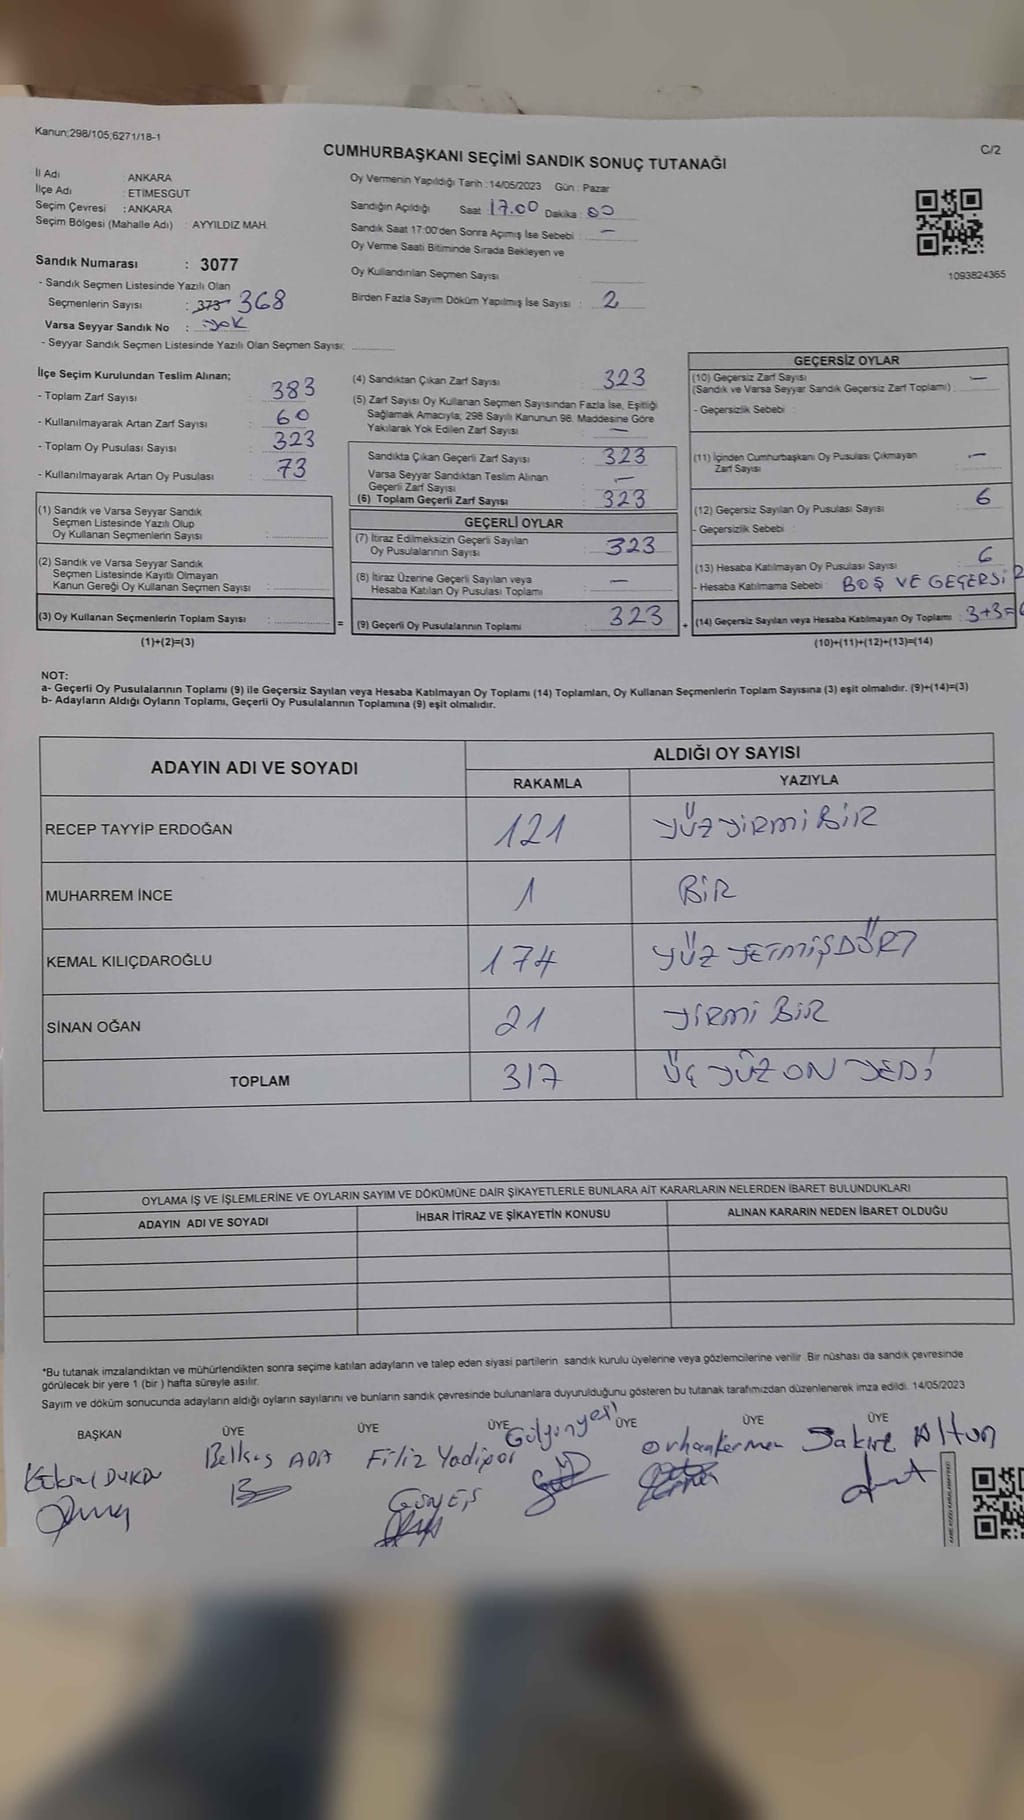 Kanun;298/105,6271/18-1
CUMHURBAŞKANI SEÇİMİ SANDIK SONUÇ TUTANAĞI
C/2
İl Adı : ANKARA
İlçe Adı : ETİMESGUT
Seçim Çevresi : ANKARA
Seçim Bölgesi (Mahalle Adı) : AYYILDIZ MAH.
Sandık Numarası : 3077
- Sandık Seçmen Listesinde Yazılı Olan
Seçmenlerin Sayısı : 373 368
Varsa Seyyar Sandık No : YOK
- Seyyar Sandık Seçmen Listesinde Yazılı Olan Seçmen Sayısı:
Oy Vermenin Yapıldığı Tarih : 14/05/2023 Gün : Pazar
Sandığın Açıldığı Saat 17.00 Dakika : 00
Sandık Saat 17:00'den Sonra Açımış İse Sebebi : —
Oy Verme Saati Bitiminde Sırada Bekleyen ve
Oy Kullandırılan Seçmen Sayısı :
Birden Fazla Sayım Döküm Yapılmış İse Sayısı : 2
1093824365
İlçe Seçim Kurulundan Teslim Alınan;
- Toplam Zarf Sayısı : 383
- Kullanılmayarak Artan Zarf Sayısı : 60
- Toplam Oy Pusulası Sayısı : 323
- Kullanılmayarak Artan Oy Pusulası : 73
(1) Sandık ve Varsa Seyyar Sandık
Seçmen Listesinde Yazılı Olup
Oy Kullanan Seçmenlerin Sayısı :
(2) Sandık ve Varsa Seyyar Sandık
Seçmen Listesinde Kayıtlı Olmayan
Kanun Gereği Oy Kullanan Seçmen Sayısı :
(3) Oy Kullanan Seçmenlerin Toplam Sayısı : =
(1)+(2)=(3)
(4) Sandıktan Çıkan Zarf Sayısı : 323
(5) Zarf Sayısı Oy Kullanan Seçmen Sayısından Fazla İse, Eşitliği
Sağlamak Amacıyla, 298 Sayılı Kanunun 98. Maddesine Göre
Yakılarak Yok Edilen Zarf Sayısı : —
Sandıkta Çıkan Geçerli Zarf Sayısı : 323
Varsa Seyyar Sandıktan Teslim Alınan
Geçerli Zarf Sayısı : —
(6) Toplam Geçerli Zarf Sayısı : 323
GEÇERLİ OYLAR
(7) İtiraz Edilmeksizin Geçerli Sayılan
Oy Pusulalarının Sayısı : 323
(8) İtiraz Üzerine Geçerli Sayılan veya
Hesaba Katılan Oy Pusulası Toplamı : —
(9) Geçerli Oy Pusulalarının Toplamı : 323 +
GEÇERSİZ OYLAR
(10) Geçersiz Zarf Sayısı —
(Sandık ve Varsa Seyyar Sandık Geçersiz Zarf Toplamı) :
- Geçersizlik Sebebi :
(11) İçinden Cumhurbaşkanı Oy Pusulası Çıkmayan —
Zarf Sayısı :
(12) Geçersiz Sayılan Oy Pusulası Sayısı : 6
- Geçersizlik Sebebi :
(13) Hesaba Katılmayan Oy Pusulası Sayısı : 6
- Hesaba Katılmama Sebebi : BOŞ VE GEÇERSİZ
(14) Geçersiz Sayılan veya Hesaba Katılmayan Oy Toplamı : 3+3=6
(10)+(11)+(12)+(13)=(14)
NOT:
a- Geçerli Oy Pusulalarının Toplamı (9) ile Geçersiz Sayılan veya Hesaba Katılmayan Oy Toplamı (14) Toplamları, Oy Kullanan Seçmenlerin Toplam Sayısına (3) eşit olmalıdır. (9)+(14)=(3)
b- Adayların Aldığı Oyların Toplamı, Geçerli Oy Pusulalarının Toplamına (9) eşit olmalıdır.
ADAYIN ADI VE SOYADI
ALDIĞI OY SAYISI
RAKAMLA YAZIYLA
RECEP TAYYİP ERDOĞAN 121 YÜZ YİRMİ BİR
MUHARREM İNCE 1 BİR
KEMAL KILIÇDAROĞLU 174 YÜZ YETMİŞDÖRT
SİNAN OĞAN 21 YİRMİ BİR
TOPLAM 317 ÜÇ YÜZ ON YEDİ
OYLAMA İŞ VE İŞLEMLERİNE VE OYLARIN SAYIM VE DÖKÜMÜNE DAİR ŞİKAYETLERLE BUNLARA AİT KARARLARIN NELERDEN İBARET BULUNDUKLARI
ADAYIN ADI VE SOYADI İHBAR İTİRAZ VE ŞİKAYETİN KONUSU ALINAN KARARIN NEDEN İBARET OLDUĞU
*Bu tutanak imzalandıktan ve mühürlendikten sonra seçime katılan adayların ve talep eden siyasi partilerin sandık kurulu üyelerine veya gözlemcilerine verilir. Bir nüshası da sandık çevresinde
görülecek bir yere 1 (bir ) hafta süreyle asılır.
Sayım ve döküm sonucunda adayların aldığı oyların sayılarını ve bunların sandık çevresinde bulunanlara duyurulduğunu gösteren bu tutanak tarafımızdan düzenlenerek imza edildi. 14/05/2023
BAŞKAN ÜYE ÜYE ÜYE ÜYE ÜYE ÜYE
Belkıs ADA Filiz Yadipor Orhan Kerman Sakine Altun
GÜNEŞ